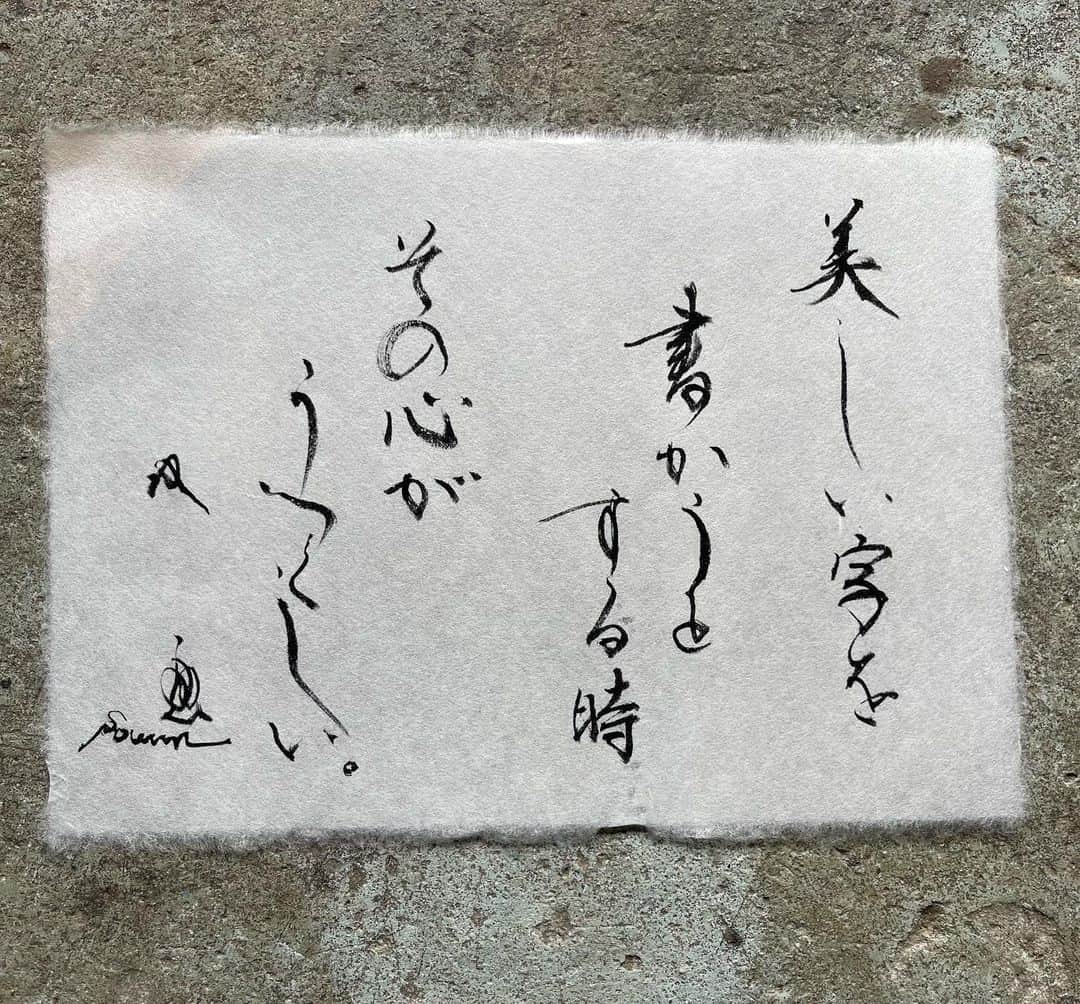 美しい字を
書かうと
する時
その心が
うつくしい。
Souun